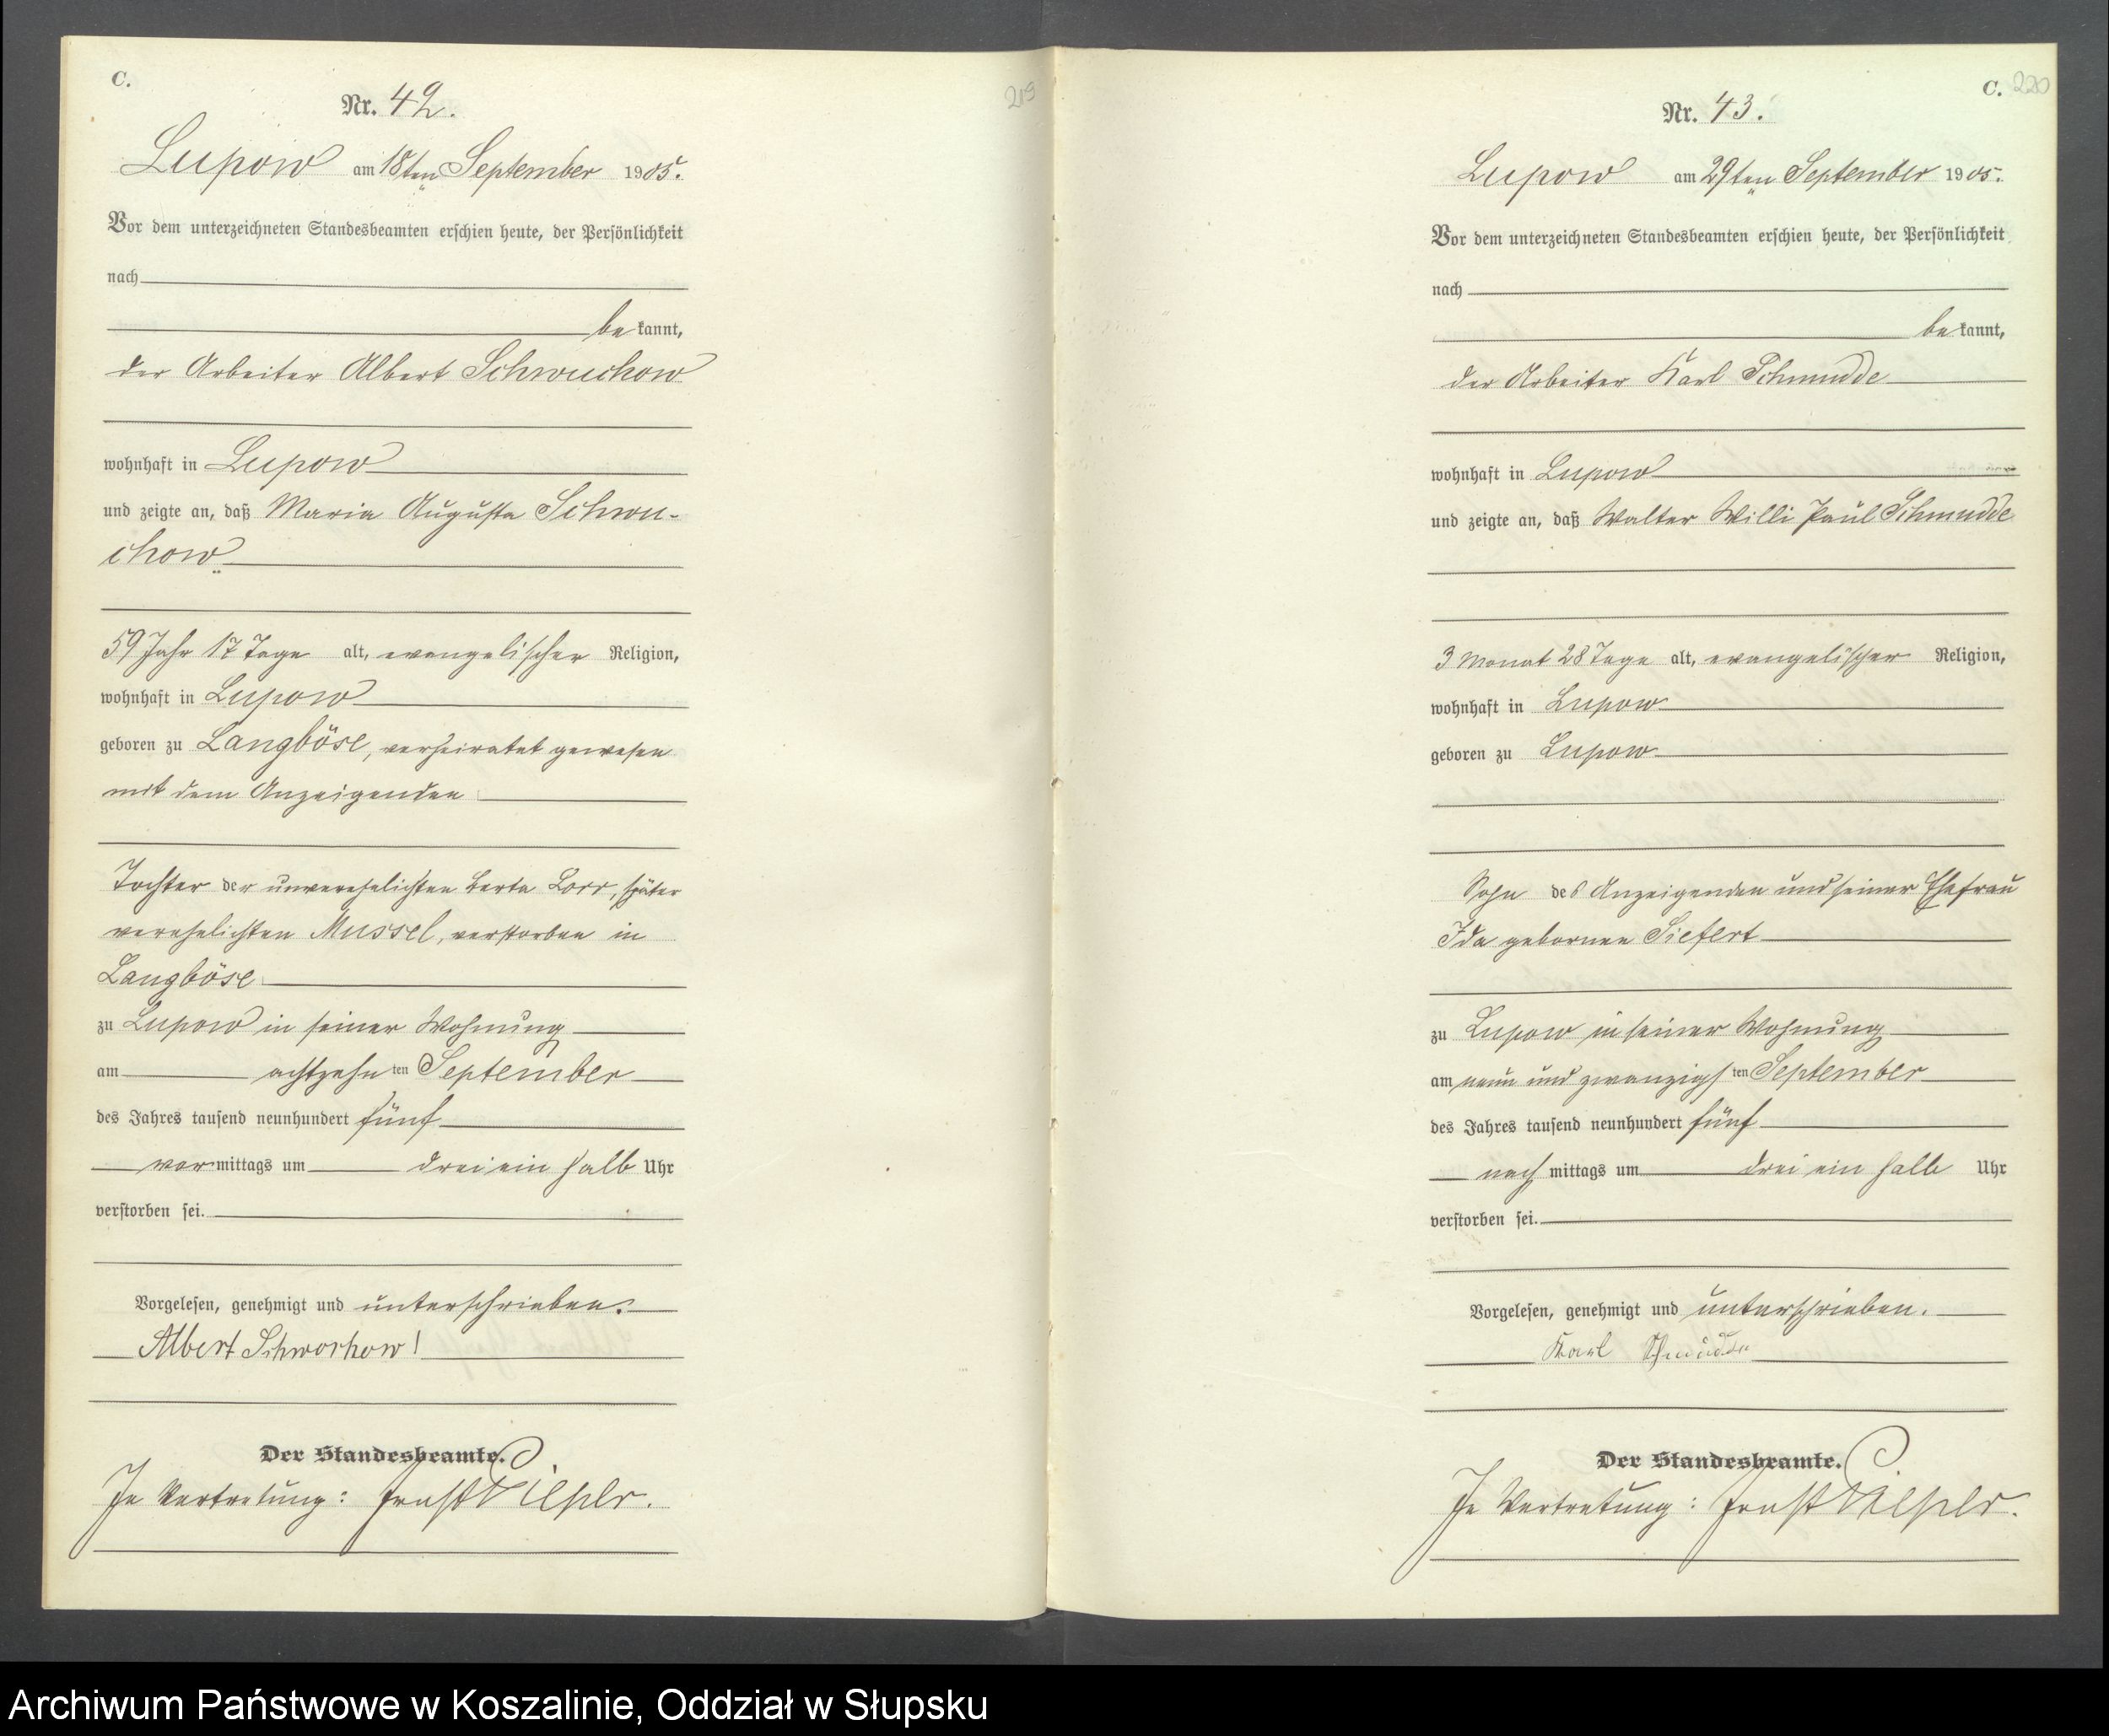 C.
219
Nr. 42.
Lupow am 18ten September 1905.
Vor dem unterzeichneten Standesbeamten erschien heute, der Persönlichkeit
nach
be kannt,
der Arbeiter Albert Schwuchow
wohnhaft in Lupow
und zeigte an, daß Maria Augusta Schwu-
chow
59 Jahr 17 Tage alt, evangelischer Religion,
wohnhaft in Lupow
geboren zu Langböse, verheiratet gewesen
mit dem Anzeigenden
Tochter der unverehelichten Berta Lorr, später
verehelichten Mussel, verstorben in
Langböse
zu Lupow in seiner Wohnung
am achtzehn ten September
des Jahres tausend neunhundert fünf
vor mittags um drei ein halb Uhr
verstorben sei.
Vorgelesen, genehmigt und unterschrieben.
Albert Schwochow
Der Standesbeamte.
In Vertretung: Ernst Pieper.
C. 220
Nr. 43.
Lupow am 29ten September 1905.
Vor dem unterzeichneten Standesbeamten erschien heute, der Persönlichkeit
nach
be kannt,
der Arbeiter Karl Schmudde
wohnhaft in Lupow
und zeigte an, daß Walter Willi Paul Schmudde
3 Monat 28 Tage alt, evangelischer Religion,
wohnhaft in Lupow
geboren zu Lupow
Sohn des Anzeigenden und seiner Ehefrau
Ida gebornen Siefert
zu Lupow in seiner Wohnung
am neun und zwanzigs ten September
des Jahres tausend neunhundert fünf
nach mittags um drei ein halb Uhr
verstorben sei.
Vorgelesen, genehmigt und unterschrieben.
Karl Schmudde
Der Standesbeamte.
In Vertretung: Ernst Pieper.
Archiwum Państwowe w Koszalinie, Oddział w Słupsku